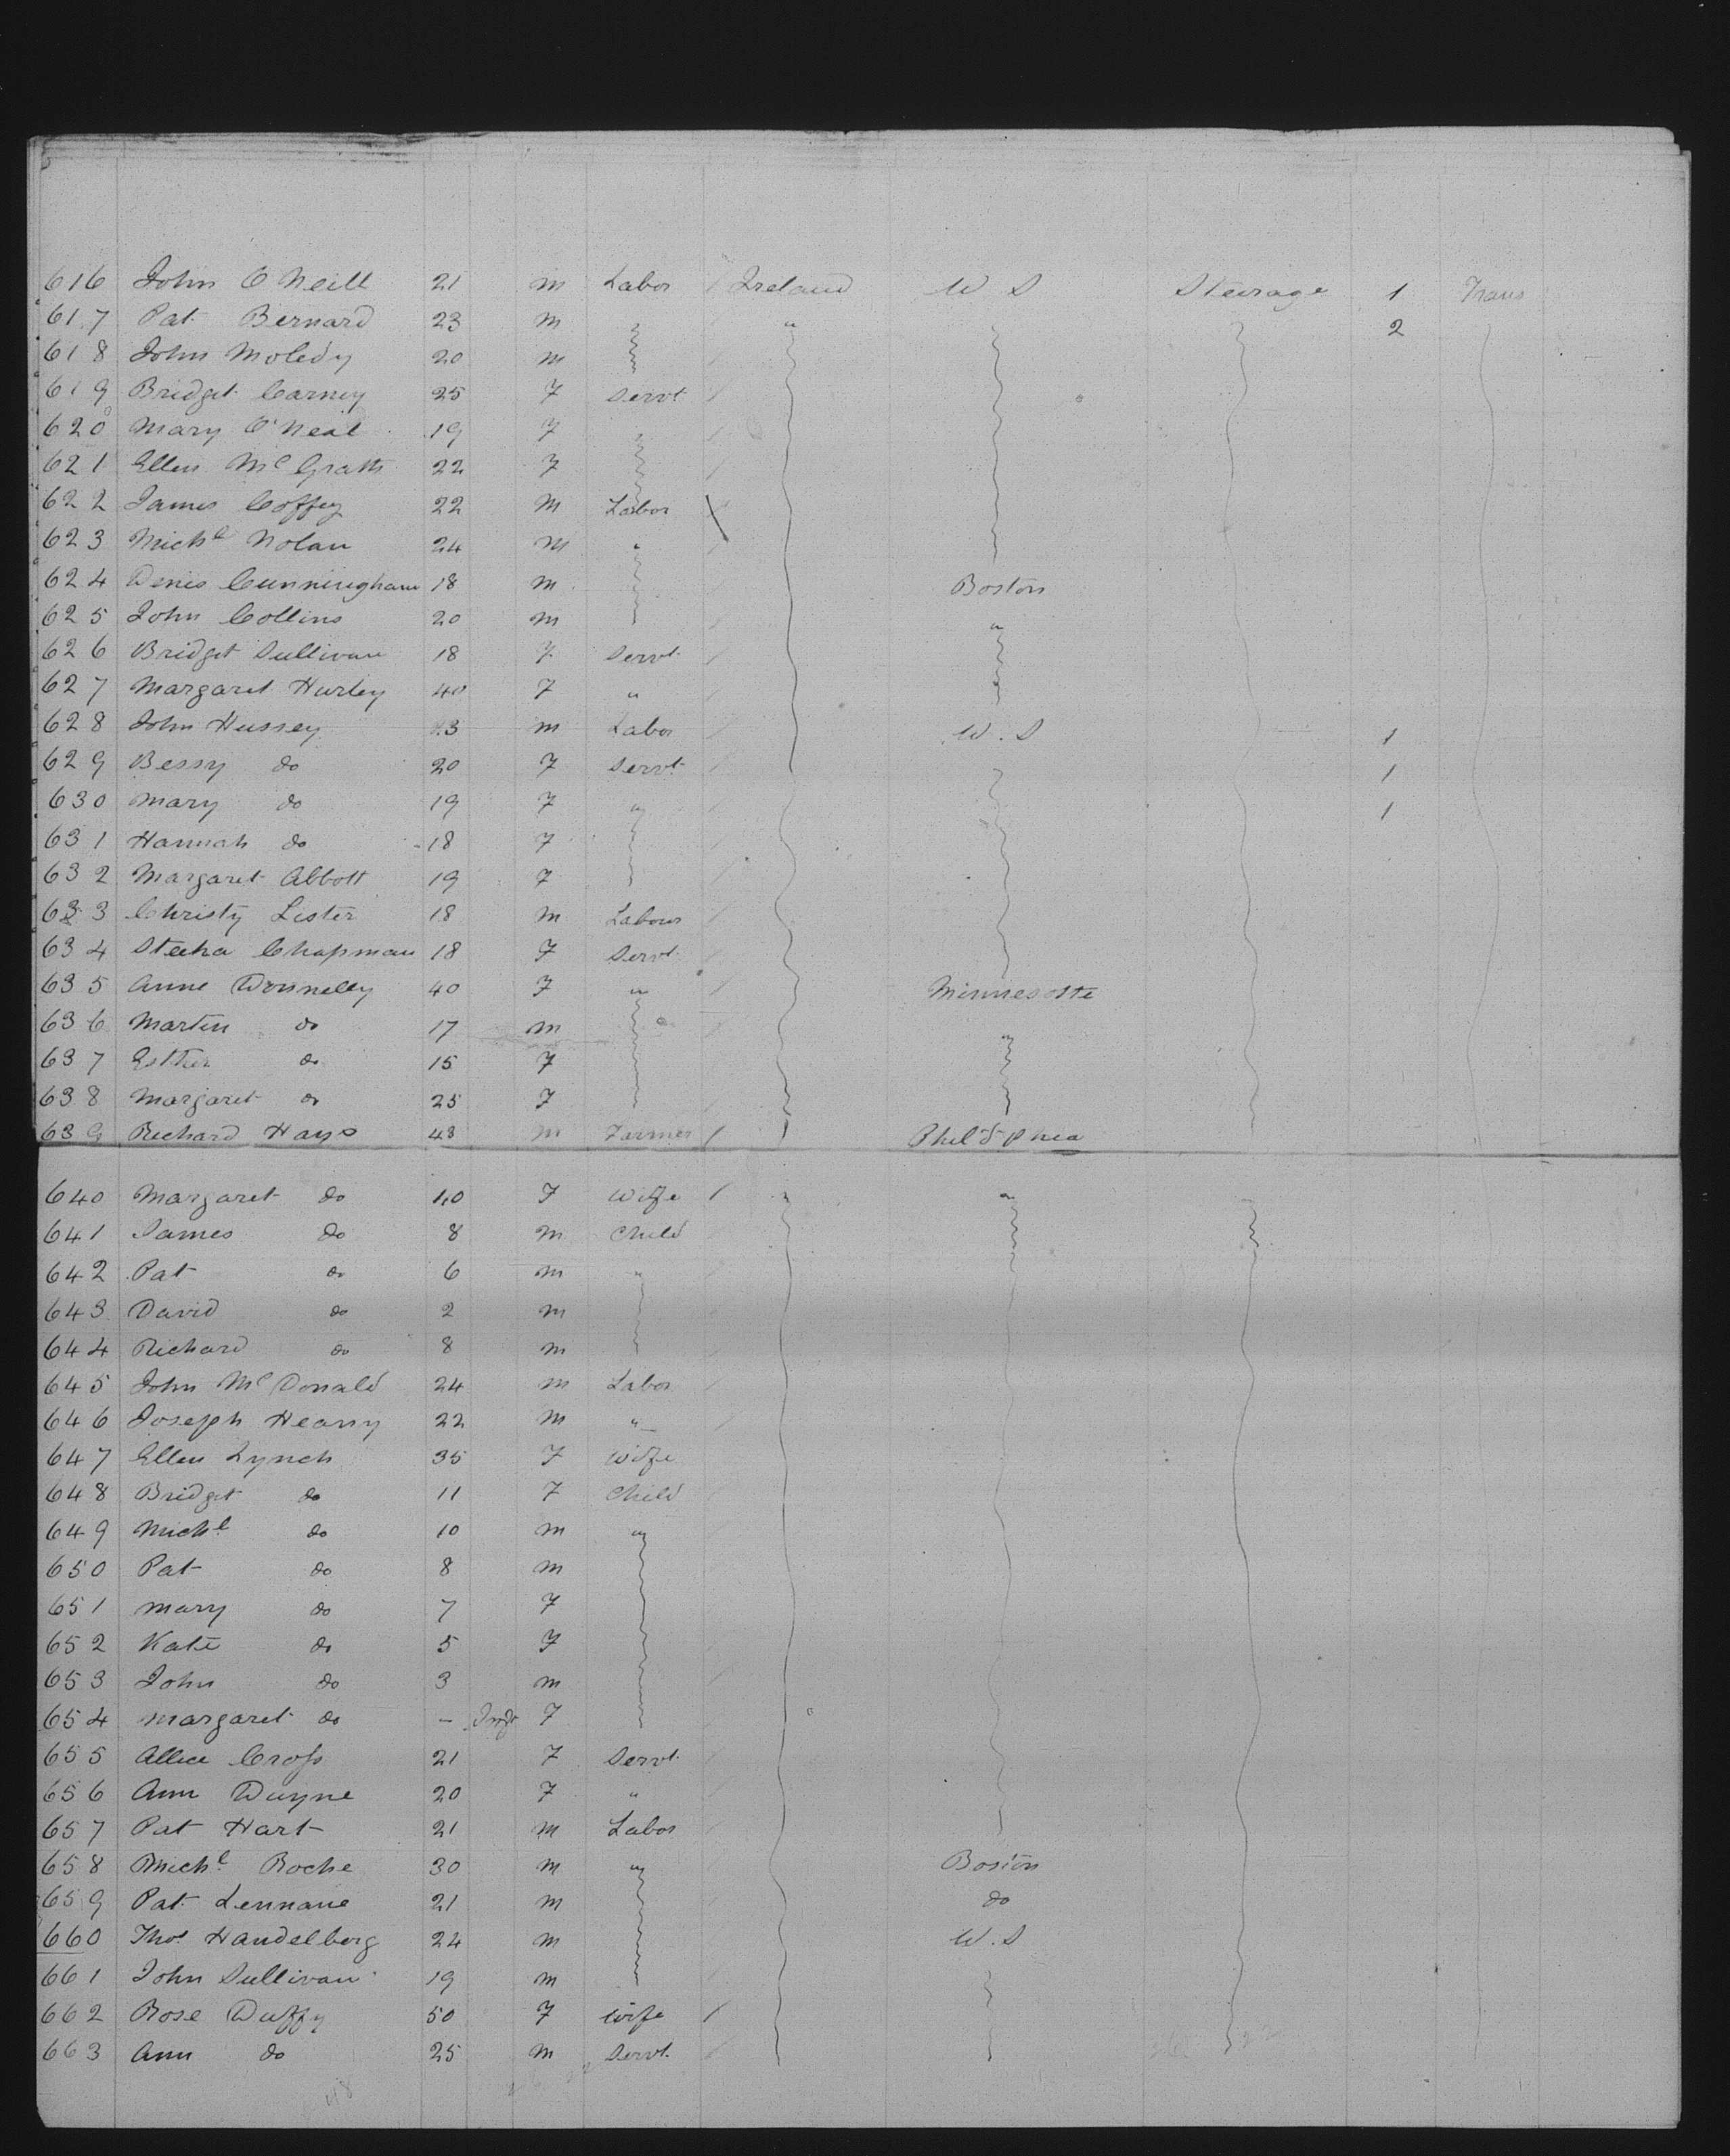 616 John O Neill 21 m Labor / Ireland U S Steirage 1 Trans
617 Pat Bernard 23 m " 2
618 John Moledy 20 m
619 Bridget Carney 25 F Servt
620 Mary O'Neal 19 F
621 Ellen McGrath 22 F
622 James Coffey 22 M Labor
623 Michl Nolan 24 M "
624 Denis Cunningham 18 m Boston
625 John Collins 20 m "
626 Bridget Sullivan 18 F Servt
627 Margaret Hurley 40 F "
628 John Hussey m Labor U.S 1
629 Bessy do 20 F Servt 1
630 Mary do 19 F " 1
631 Hannah do 18 F
632 Margaret Abbott 19 F
633 Christy Lister 18 m Labour
634 Chapman 18 F Servt
635 Anne Donneley 40 F " Minnesotte
636 Martin do 17 m "
637 Esther do 15 F
638 Margaret do 25 F
639 Richard Hays 43 m Farmer / Phildphia
640 Margaret do 40 F Wife / " "
641 James do 8 m Child
642 Pat do 6 m "
643 David do 2 m
644 Richard do 8 m
645 John McDonald 24 m Labor
646 Joseph Heany 22 m "
647 Ellen Lynch 35 F Wife
648 Bridget do 11 F Child
649 Michl do 10 m "
650 Pat do 8 m
651 Mary do 7 F
652 Kate do 5 F
653 John do 3 m
654 Margaret do - Inft F
655 Allice Cross 21 F Servt
656 Ann Duyne 20 F "
657 Pat Hart 21 m Labor
658 Michl Roche 30 m " Boston
659 Pat Lennane 21 m do
660 Thos Handelberg 24 m U.S
661 John Sullivan 19 m
662 Rose Duffy 50 F Wife /
663 Ann do 25 m Servt